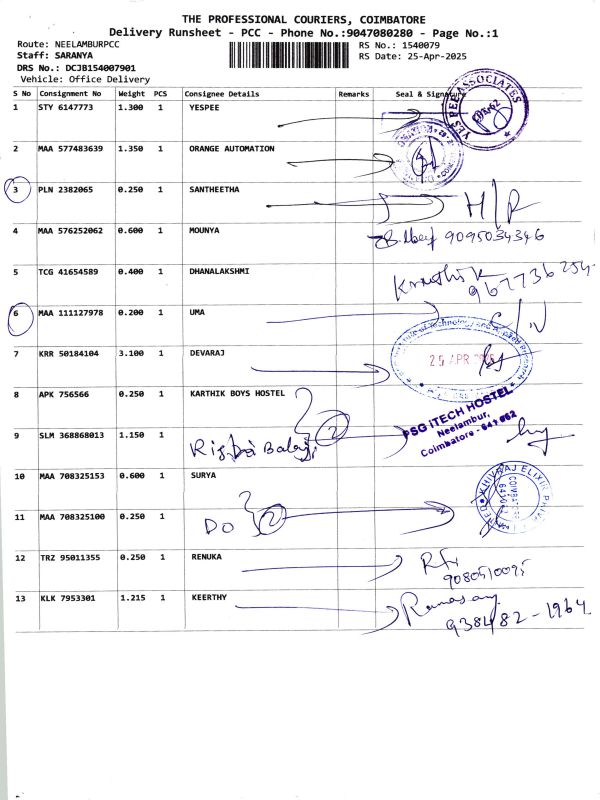 THE PROFESSIONAL COURIERS, COIMBATORE
Delivery Runsheet - PCC - Phone No.:9047080280 - Page No.:1
Route: NEELAMBURPCC RS No.: 1540079
Staff: SARANYA RS Date: 25-Apr-2025
DRS No.: DCJB154007901
Vehicle: Office Delivery
S No Consignment No Weight PCS Consignee Details Remarks Seal & Signature
1 STY 6147773 1.300 1 YESPEE
YES PEE ASSOCIATES
2 MAA 577483639 1.350 1 ORANGE AUTOMATION
3 PLN 2382065 0.250 1 SANTHEETHA H/R
4 MAA 576252062 0.600 1 MOUNYA 9095034346
5 TCG 41654589 0.400 1 DHANALAKSHMI Karthik
967736254
6 MAA 111127978 0.200 1 UMA
7 KRR 50184104 3.100 1 DEVARAJ
of Technology and Applied Research
25 APR
8 APK 756566 0.250 1 KARTHIK BOYS HOSTEL
2
PSG iTECH HOSTEL
Neelambur,
Coimbatore - 641 062
9 SLM 368868013 1.150 1
10 MAA 708325153 0.600 1 SURYA
KHIVRAJ ELIXIR
11 MAA 708325100 0.250 1 DO 2
12 TRZ 95011355 0.250 1 RENUKA
9080510095
13 KLK 7953301 1.215 1 KEERTHY Ramasamy
938482-1964